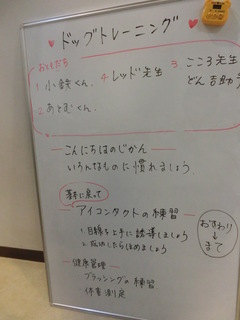 ドッグトレーニング
おともだち
1 小鉄くん、4 レッド先生 3 こころ先生
2 あとむくん、 どん吉助っ
こんにちはのじかん
いろんなものに慣れましょう
基本に戻って
アイコンタクトの練習
1. 目線を上手に誘導しましょう
2. 反応したらほめましょう
おすわり
↓
まて
健康管理
ブラッシングの練習
体重測定